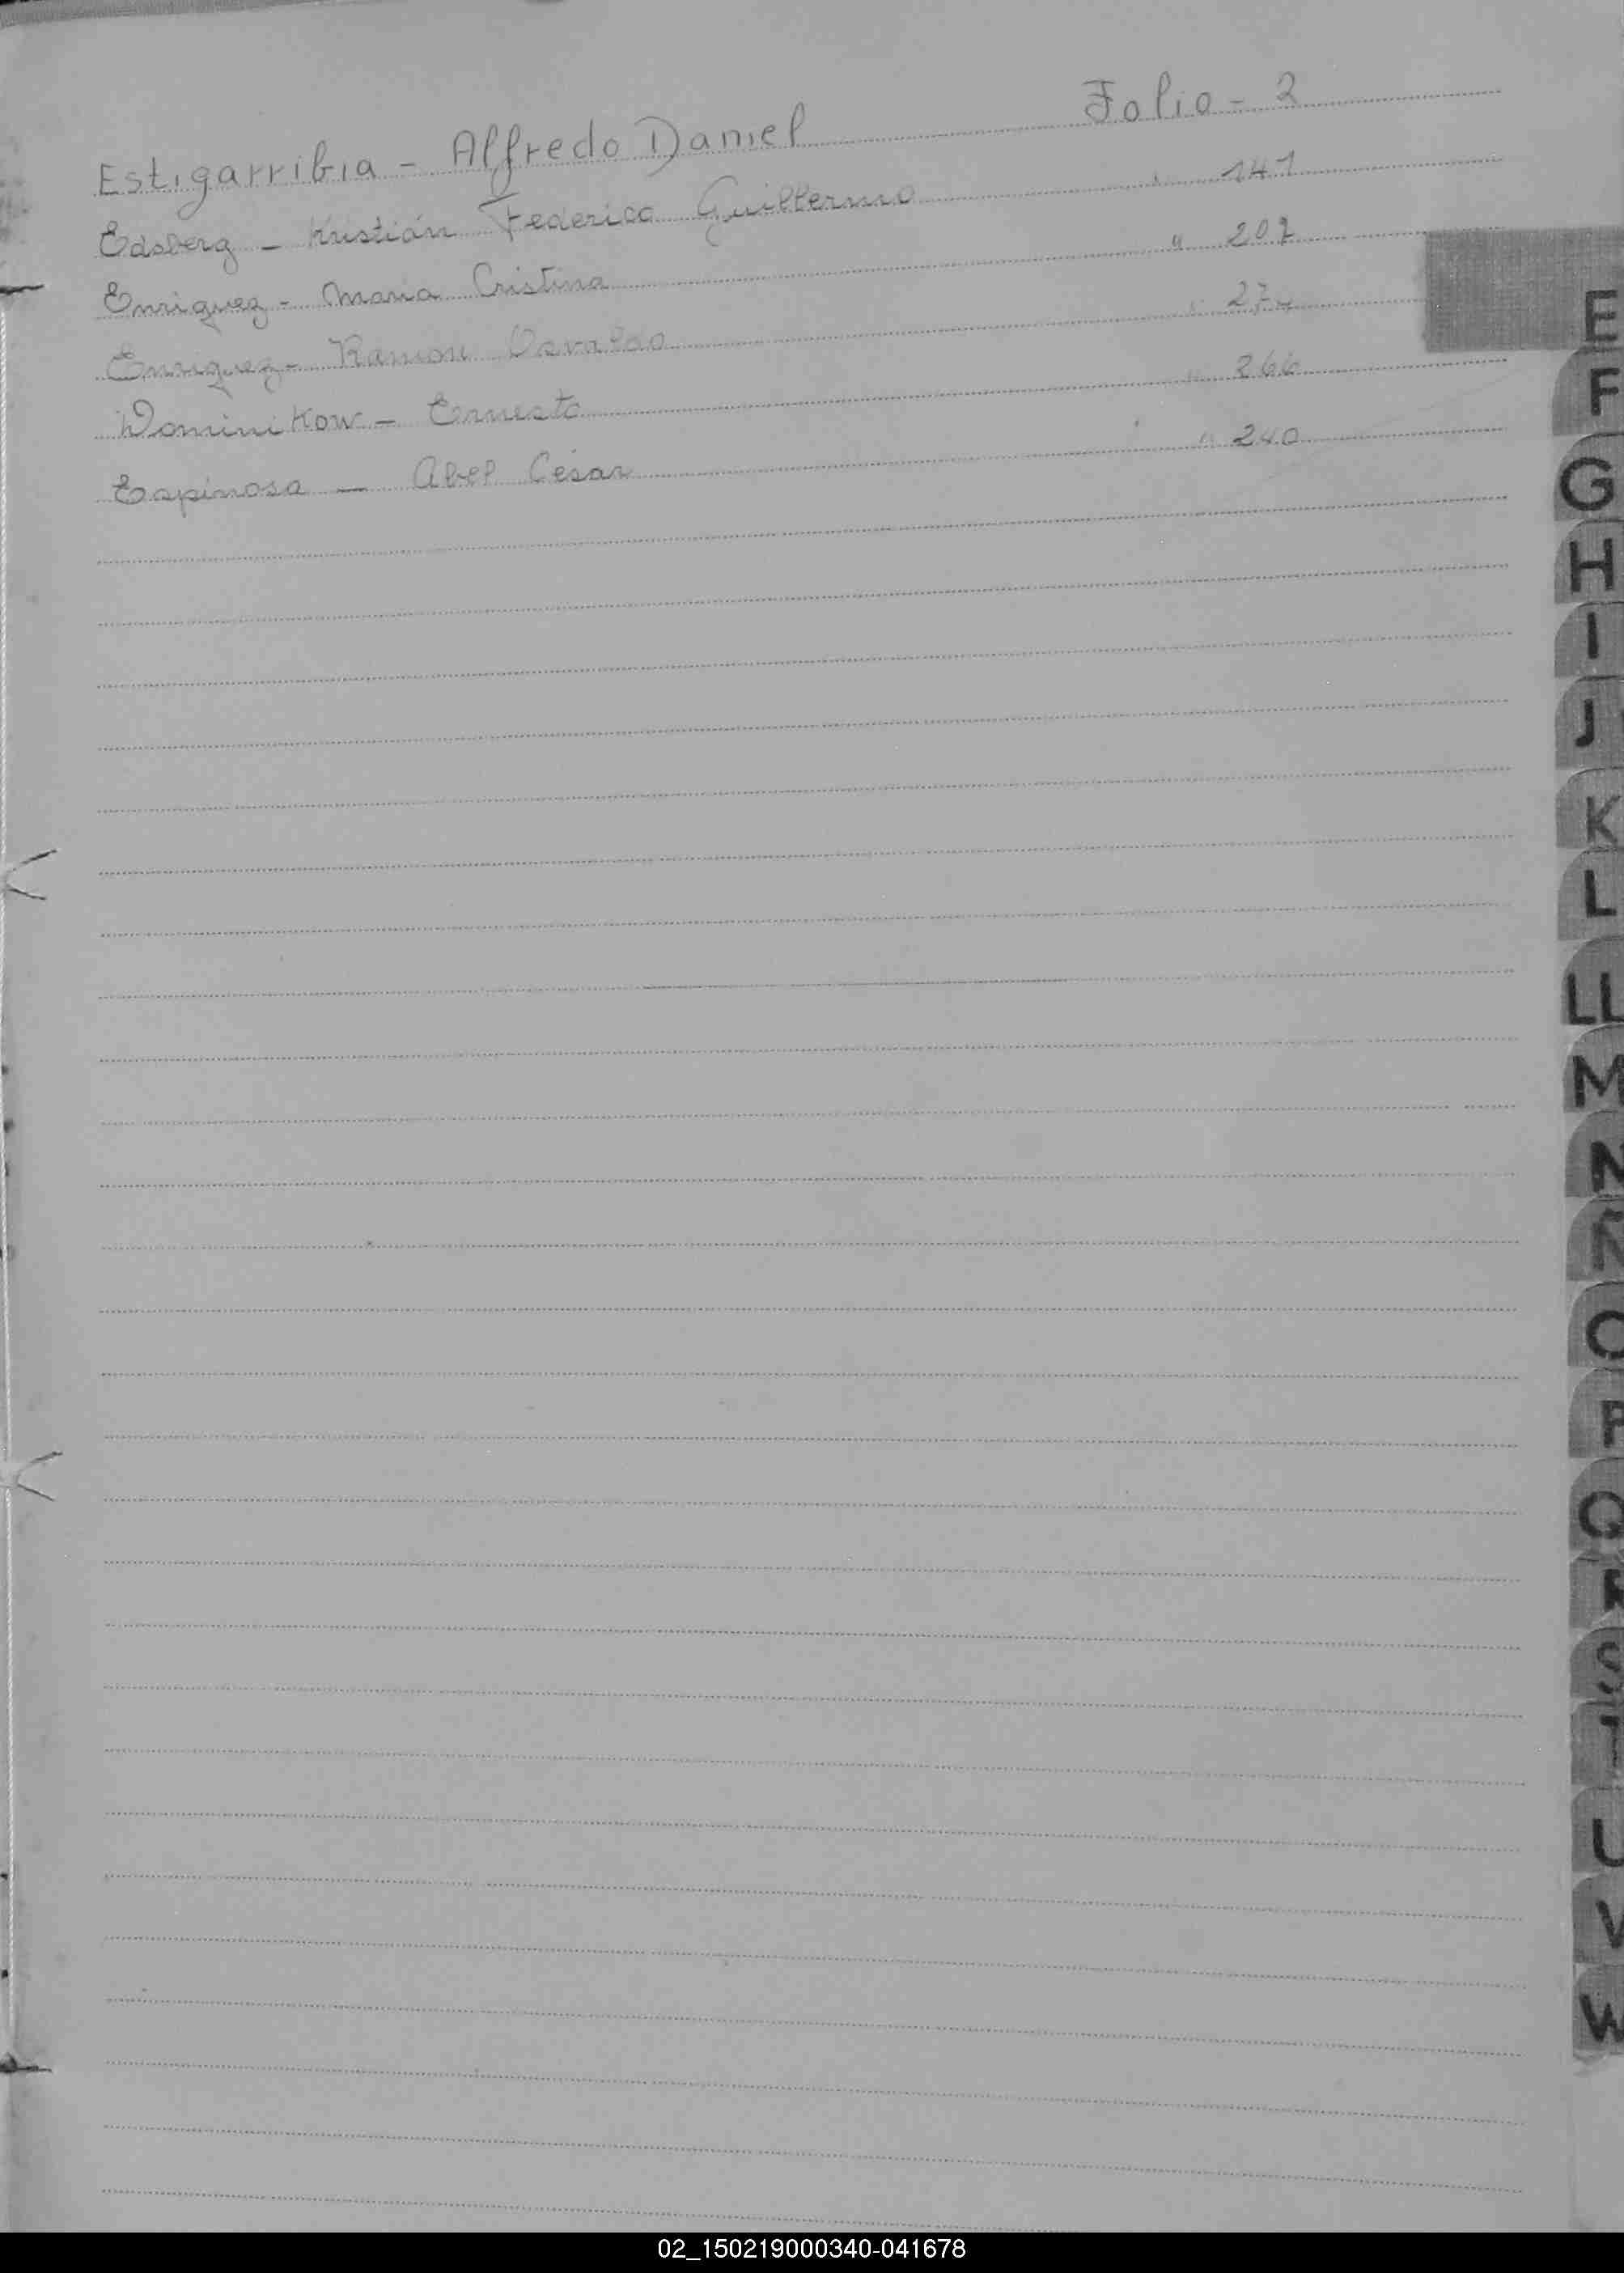 Estigarribia - Alfredo Daniel Folio - 2
Edsberg - Kristián Federico Guillermo " 141
Enriquez - Maria Cristina " 207
Enriquez - Ramon Osvaldo "
Dominikow - Ernesto " 266
Espinosa - Abel César " 240
E
F
G
H
I
J
K
L
LL
M
N
Ñ
O
P
Q
R
S
T
U
V
W
02_150219000340-041678